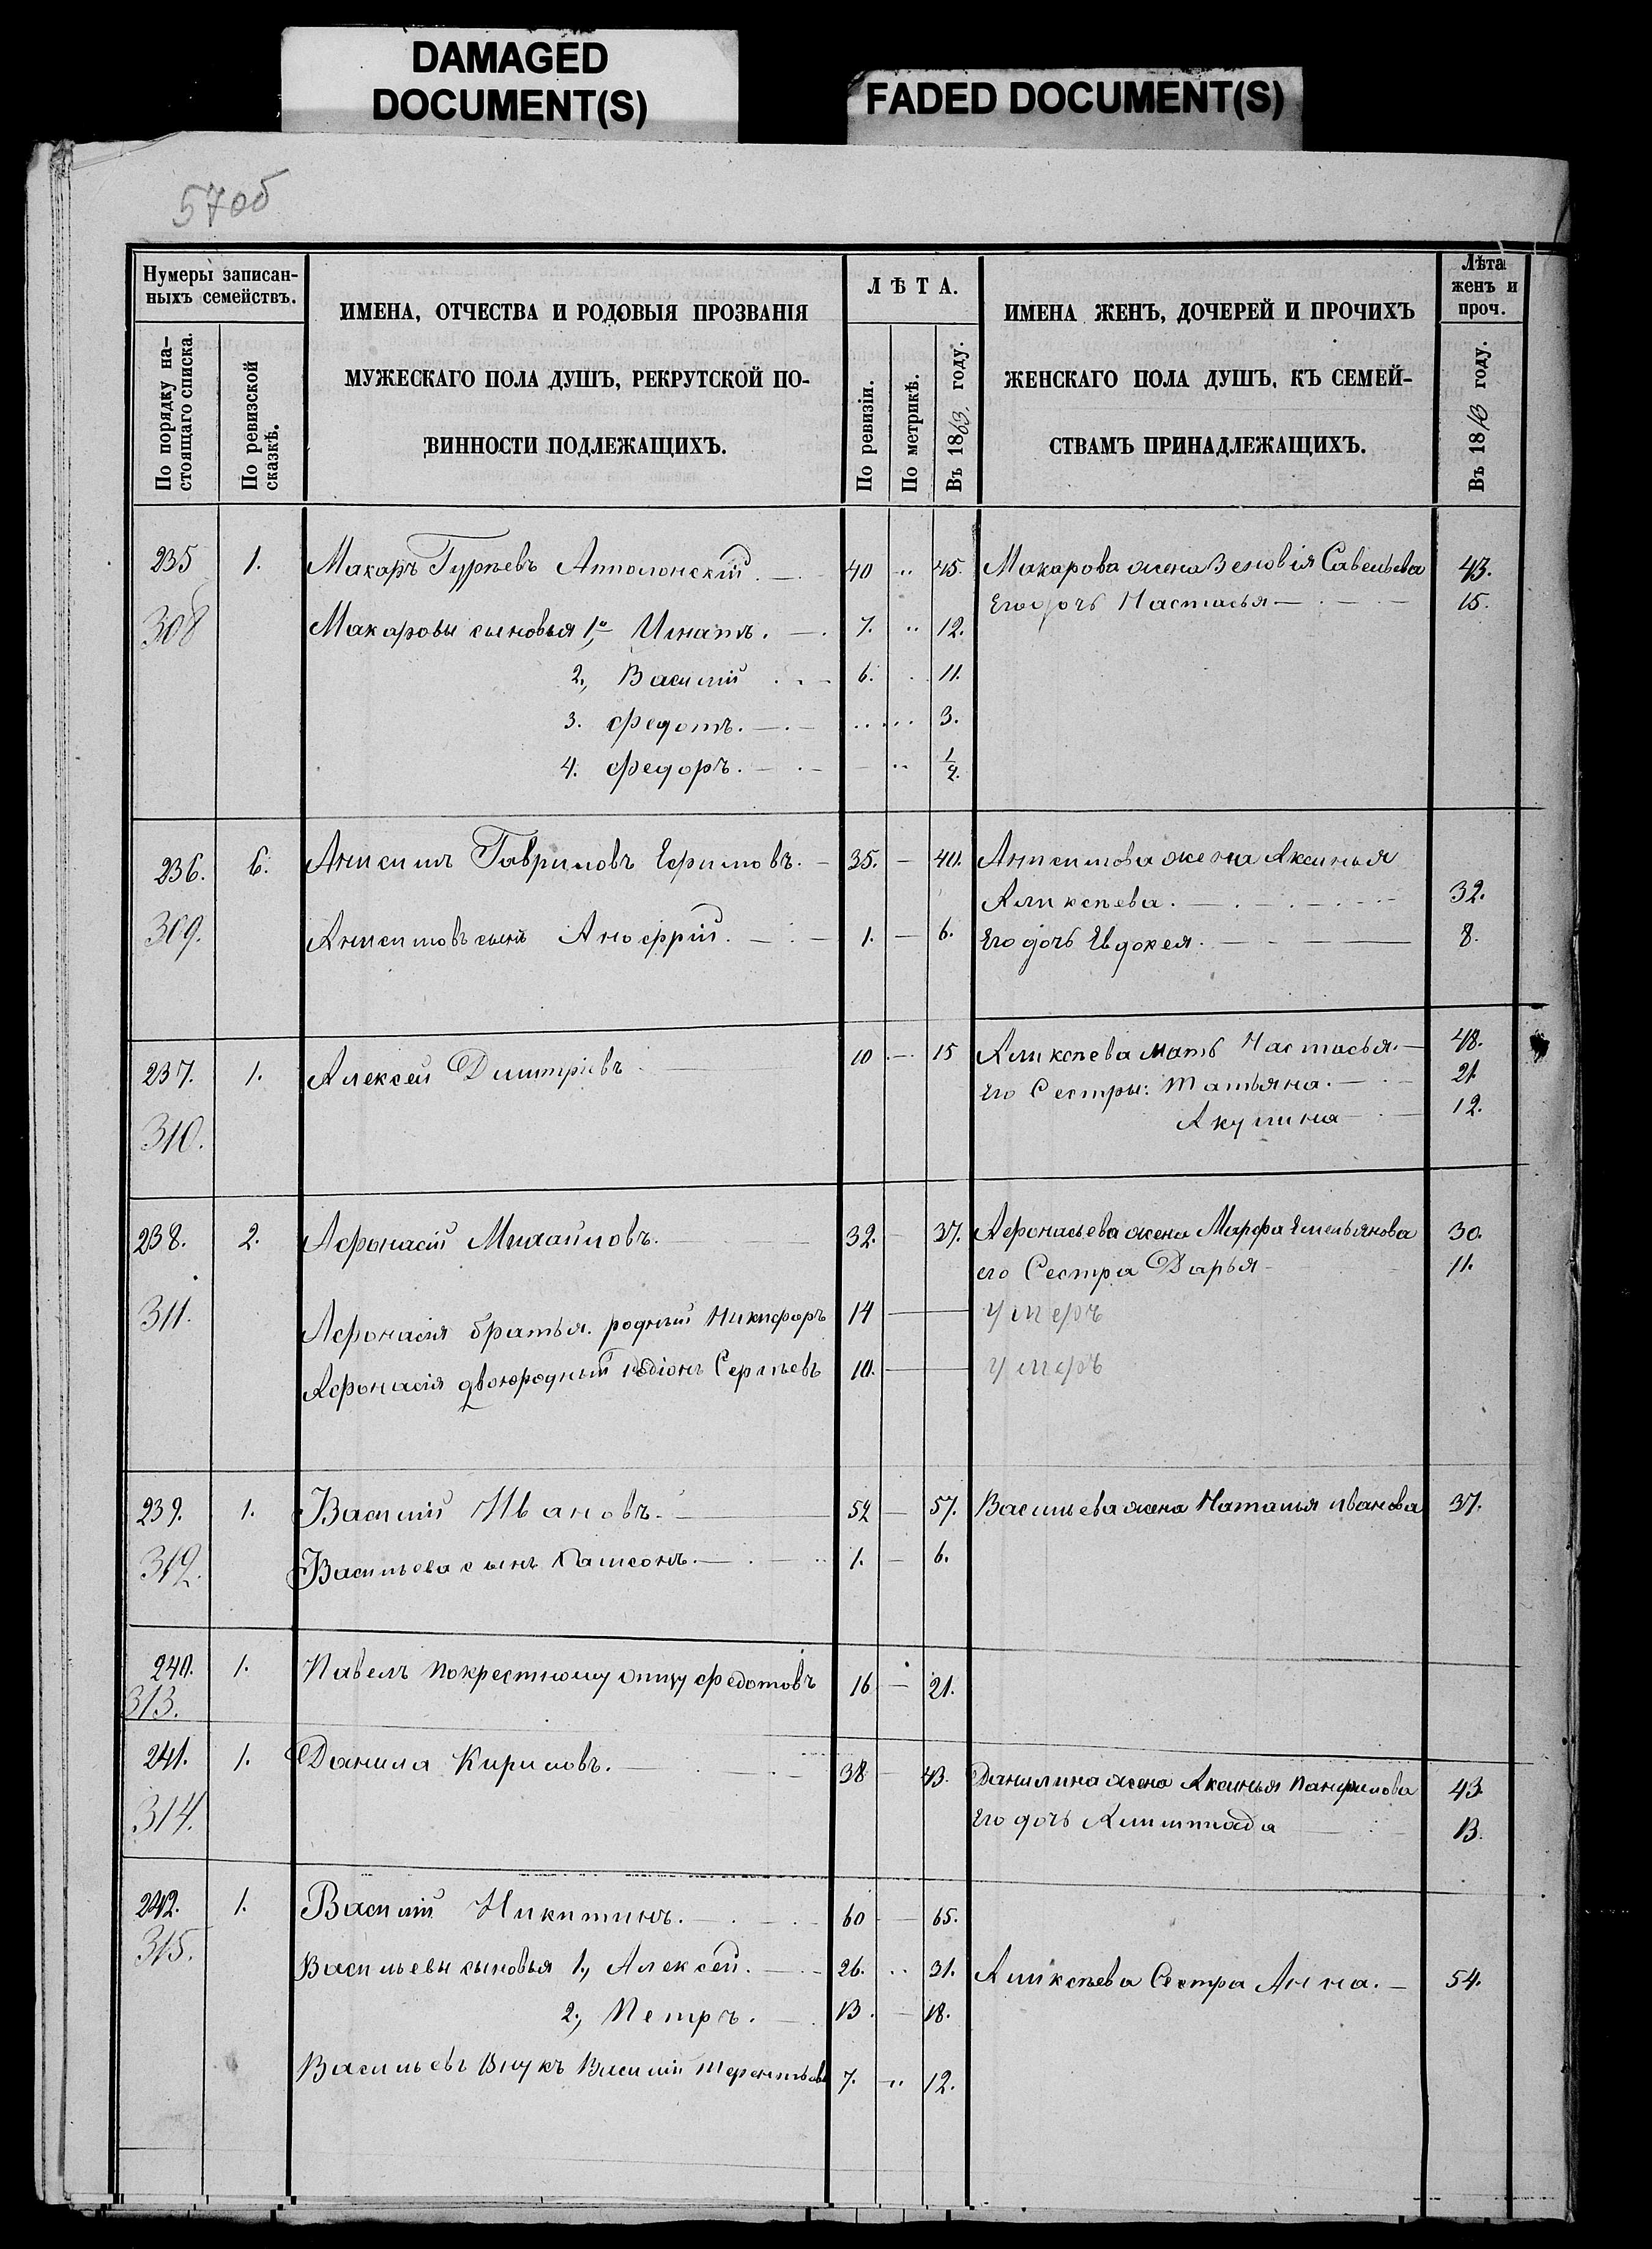 DAMAGED
DOCUMENT(S)
FADED DOCUMENT(S)
57об
Нумеры записан-
ныхъ семействъ.
По порядку на-
стоящаго списка.
По ревизской
сказкѣ.
ИМЕНА, ОТЧЕСТВА И РОДОВЫЯ ПРОЗВАНІЯ
МУЖЕСКАГО ПОЛА ДУШЪ, РЕКРУТСКОЙ ПО-
ВИННОСТИ ПОДЛЕЖАЩИХЪ.
ЛѢТА.
По ревизіи.
По метрикѣ.
Въ 1863 году.
ИМЕНА ЖЕНЪ, ДОЧЕРЕЙ И ПРОЧИХЪ
ЖЕНСКАГО ПОЛА ДУШЪ, КЪ СЕМЕЙ-
СТВАМЪ ПРИНАДЛЕЖАЩИХЪ.
Лѣта
женъ и
проч.
Въ 1863 году.
235 1. Макаръ Гурьевъ Апполонскій 40 45. Макарова жена Зеновія Савельева 43.
Его дочь Настасья 15.
308 Макаровы сыновья 1е, Игнатъ. 7. 12.
2., Василій 6. 11.
3. Федотъ. 3.
4. Федоръ. 1/2.
236. 6. Анисимъ Гавриловъ Ефимовъ. 35. 40. Анисимова жена Аксинья
Аликсѣева. 32.
309. Анисимовъ сынъ Анофрій. 1. 6. Его дочь Евдокея. 8.
237. 1. Алексей Дмитріевъ 10 15 Аликсѣева мать Настасья. 48.
Его Сестры: Татьяна. 21.
310. Акулина 12.
238. 2. Афонасій Михаиловъ. 32. 37. Афонасьева жена Марфа Емельянова 30.
его Сестра Дарья 11.
311. Афонасія братья. родный Никифоръ 14 умеръ
Афонасія двоюродный Родіонъ Сергѣевъ 10. умеръ
239. 1. Василій Ивановъ. 52 57. Васильева жена Наталья иванова 37.
312. Васильева сынъ Самсонъ. 1. 6.
240. 1. Павелъ покрестному отцу Федотовъ 16 21.
313.
241. 1. Данила Кириловъ. 38 43. Данилина жена Аксинья панфилова 43.
314. Его дочь 13.
242. 1. Василій Никитинъ. 60 65.
315.
Васильевы сыновья 1., Алексей. 26. 31. Аликсѣева Сестра Анна. 54.
2., Петръ. 13. 18.
Васильевъ Внукъ Василій Терентьевъ 7. 12.